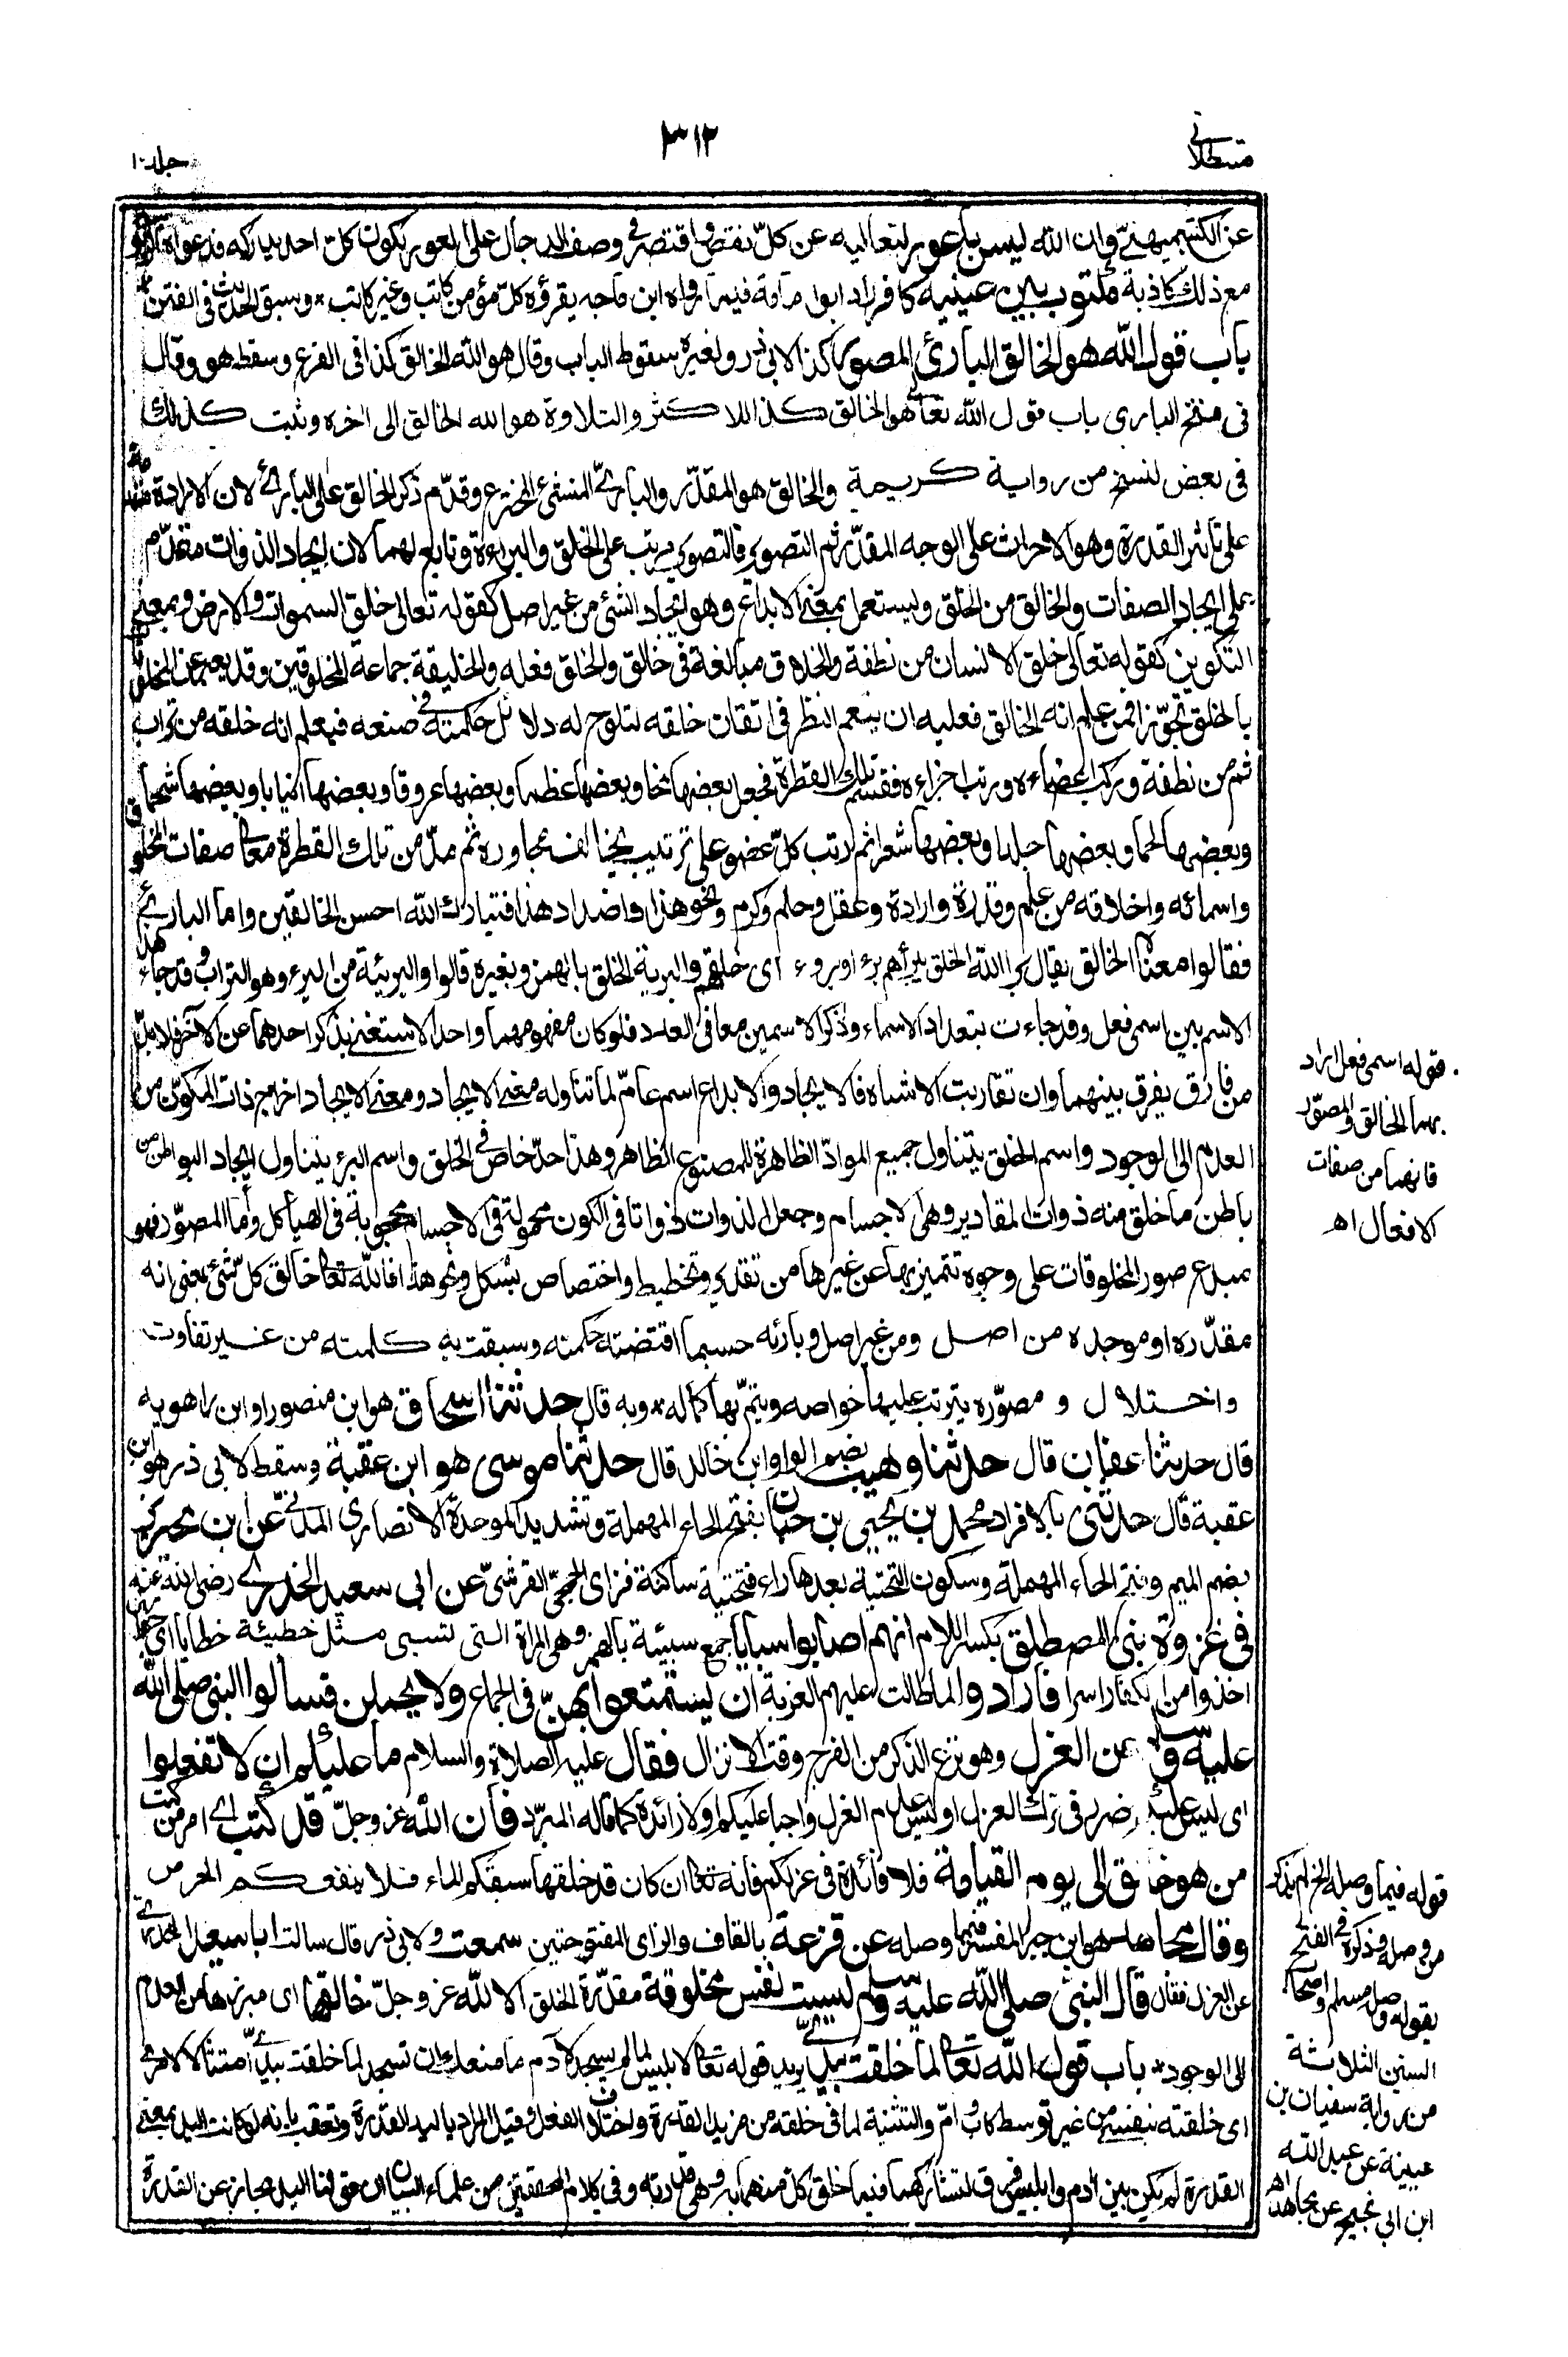 قسطلانى
٣١٢
جلد ١٠
عز الكشميهنىّ وان الله ليس بأعور لتعاليه عن كلّ نقص واقتصر فى وصف الدجال على العور لكون كلّ احد يدركه فدعواه
مع ذلك كاذبة مكتوب بين عينيه كافر زاد ابو امامة فيما رواه ابن ماجه يقرؤه كلّ مؤمن كاتب وغير كاتب * وسبق الحديث فى الفتن
باب قول الله هو الخالق البارئ المصور كذا لابى ذر ولغيره سقوط الباب وقال هو الله الخالق كذا فى الفرع وسقط هو وقال
فى فتح البارى باب قول الله تعالى هو الخالق كذا للاكثر والتلاوة هو الله الخالق الى اخره وثبت كذلك
فى بعض النسخ من رواية كريمة والخالق هو المقدّر والبارئ المنشئ المخترع وقدّم ذكر الخالق على البارئ لان الارادة
على تأثير القدرة وهو الاحداث على الوجه المقدّر ثم التصوير فالتصوير مرتب على الخلق والبراءة وتابع لهما لان ايجاد الذوات مقدّم
على ايجاد الصفات والخالق من الخلق ويستعمل بمعنى الابداع وهو ايجاد الشئ من غير اصل كقوله تعالى خلق السموات والارض وبمعنى
التكوين كقوله تعالى خلق الانسان من نطفة والخلاق مبالغة فى خالق والخلق فعله والخليقة جماعة المخلوقين وقد يعبر عن المخلوق
بالخلق تجوّزا فمن علم انه الخالق فعليه ان ينعم النظر فى اتقان خلقه لتلوح له دلائل حكمته فى صنعه فيعلم انه خلقه من تراب
ثم من نطفة وركب اعضاءه ورتب اجزاءه فقسم تلك القطرة فجعل بعضها مخا وبعضها عظما وبعضها عروقا وبعضها انيابا وبعضها شحما
وبعضها لحما وبعضها جلدا وبعضها شعرا ثم رتب كلّ عضو على ترتيب يخالف مجاوره ثم مدّ من تلك القطرة معانى صفات المخلوق
واسمائه واخلاقه من علم وقدرة وارادة وعقل وحلم وكرم ونحو هذا واضداد هذا فتبارك الله احسن الخالقين واما البارئ
فقالوا معناه الخالق يقال برأ الله الخلق يبرأهم برء اوبروء اى خلقهم والبرية الخلق بالهمز وبغيره قالوا والبريئة من البرء وهو التراب وقد جاء هذا
الاسم بين اسمى فعل وقد جاءت بتعداد الاسماء وذكر الاسمين معا فى العدد فلو كان مفهومهما واحدا لاستغنى بذكر احدهما عن الآخر فلا بدّ
من فارق يفرق بينهما وان تقاربت الاشباه فالايجاد والابداع اسم عامّ لما تناوله معنى الايجاد ومعنى الايجاد اخراج ذات المكوّن من
العدم الى الوجود واسم الخلق يتناول جميع الموادّ الظاهرة للمصنوع الظاهر وهذا حدّ خاص فى الخلق واسم البرء يتناول ايجاد البواطن من
باطن ما خلق منه ذوات المقادير وهى الاجسام وجعل الذوات ذواتا فى الكون محمولة فى الاجسام محجوبة فى الهياكل وأما المصوّر فهو
مبدع صور المخلوقات على وجوه تتميز بها عن غيرها من تقدير وتخطيط واختصاص بشكل ونحو هذا فالله تعالى خالق كلّ شئ بمعنى انه
مقدّره او موجده من اصل ومن غير اصل وبارئه حسبما اقتضته حكمته وسبقت به كلمته من غير تفاوت
واختلال و مصوّره يترتب عليها خواصه ويتمّ بها كماله * وبه قال حدثنا اسحاق هو ابن منصور او ابن راهويه
قال حدثنا عفان قال حدثنا وهيب بضم الواو ابن خالد قال حدثنا موسى هو ابن عقبة وسقط لابى ذر هو ابن
عقبة قال حدثنى بالافراد محمد بن يحيى بن حبان بفتح الحاء المهملة وتشديد الموحدة الانصارى المدنىّ عن ابن محيريز
بضم الميم وفتح الحاء المهملة وسكون التحتية بعدها راء فتحتية ساكنة فزاى الجمحىّ القرشىّ عن ابى سعيد الخدرى رضى الله عنه
فى غزوة بنى المصطلق بكسر اللام انهم اصابوا سبايا جمع سبيئة بالهمز وهى المرأة التى تسبى مثل خطيئة خطايا اى
اخذوا من الكفار اسرا فارادوا لما طالت عليهم العزبة ان يستمتعوا بهنّ فى الجماع ولا يحملن فسألوا النبى صلى الله
عليه وسلم عن العزل وهو نزع الذكر من الفرج وقت الانزال فقال عليه الصلاة والسلام ما عليكم ان لا تفعلوا
اى ليس عليكم ضرر فى ترك العزل او ليس عدم العزل واجبا عليكم ولا زائدة كما قاله المبرّد فان الله عز وجلّ قد كتب اى امر من كتب
من هو خالق الى يوم القيامة فلا فائدة فى عزلكم فانه تعالى ان كان قد خلقها سبقكم الماء فلا ينفعكم الحرص
وقال مجاهد هو ابن جبر المفسر فيما وصله عن قزعة بالقاف والزاى المفتوحتين سمعت ولابى ذر قال سالت ابا سعيد الخدرى
عن العزل فقال قال النبىّ صلى الله عليه وسلم ليست نفس مخلوقة مقدّرة الخلق الا الله عز وجلّ خالقها اى مبرزها من العدم
الى الوجود * باب قول الله تعالى لما خلقت بيدىّ يريد قوله تعالى لابليس لما لم يسجد لآدم ما منعك ان تسجد لما خلقت بيدىّ امتثالا لامرى
اى خلقته بنفسى من غير توسط كاب وامّ والتثنية لما فى خلقه من مزيد القدرة واختلاف الفعل وقيل المراد باليد القدرة وتعقب بانه لو كانت اليد بمعنى
القدرة لم يكن بين ادم وابليس فرق لتشاركهما فيما خلق كلّ منهما به وهى قدرته وفى كلام المحققين من علماء البيان ان قولنا اليد مجاز عن القدرة
قوله اسمى فعل اراد
بهما الخالق والمصوّر
فانهما من صفات
الافعال اه
قوله فيما وصله الخ لم يذكر
من وصله وذكره فى الفتح
بقوله وصله مسلم واصحاب
السنن الثلاثة
من رواية سفيان بن
عيينة عن عبد الله
ابن ابى نجيح عن مجاهد اه